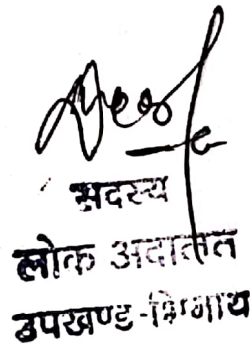 सदस्य
लोक अदालत
उपखण्ड-